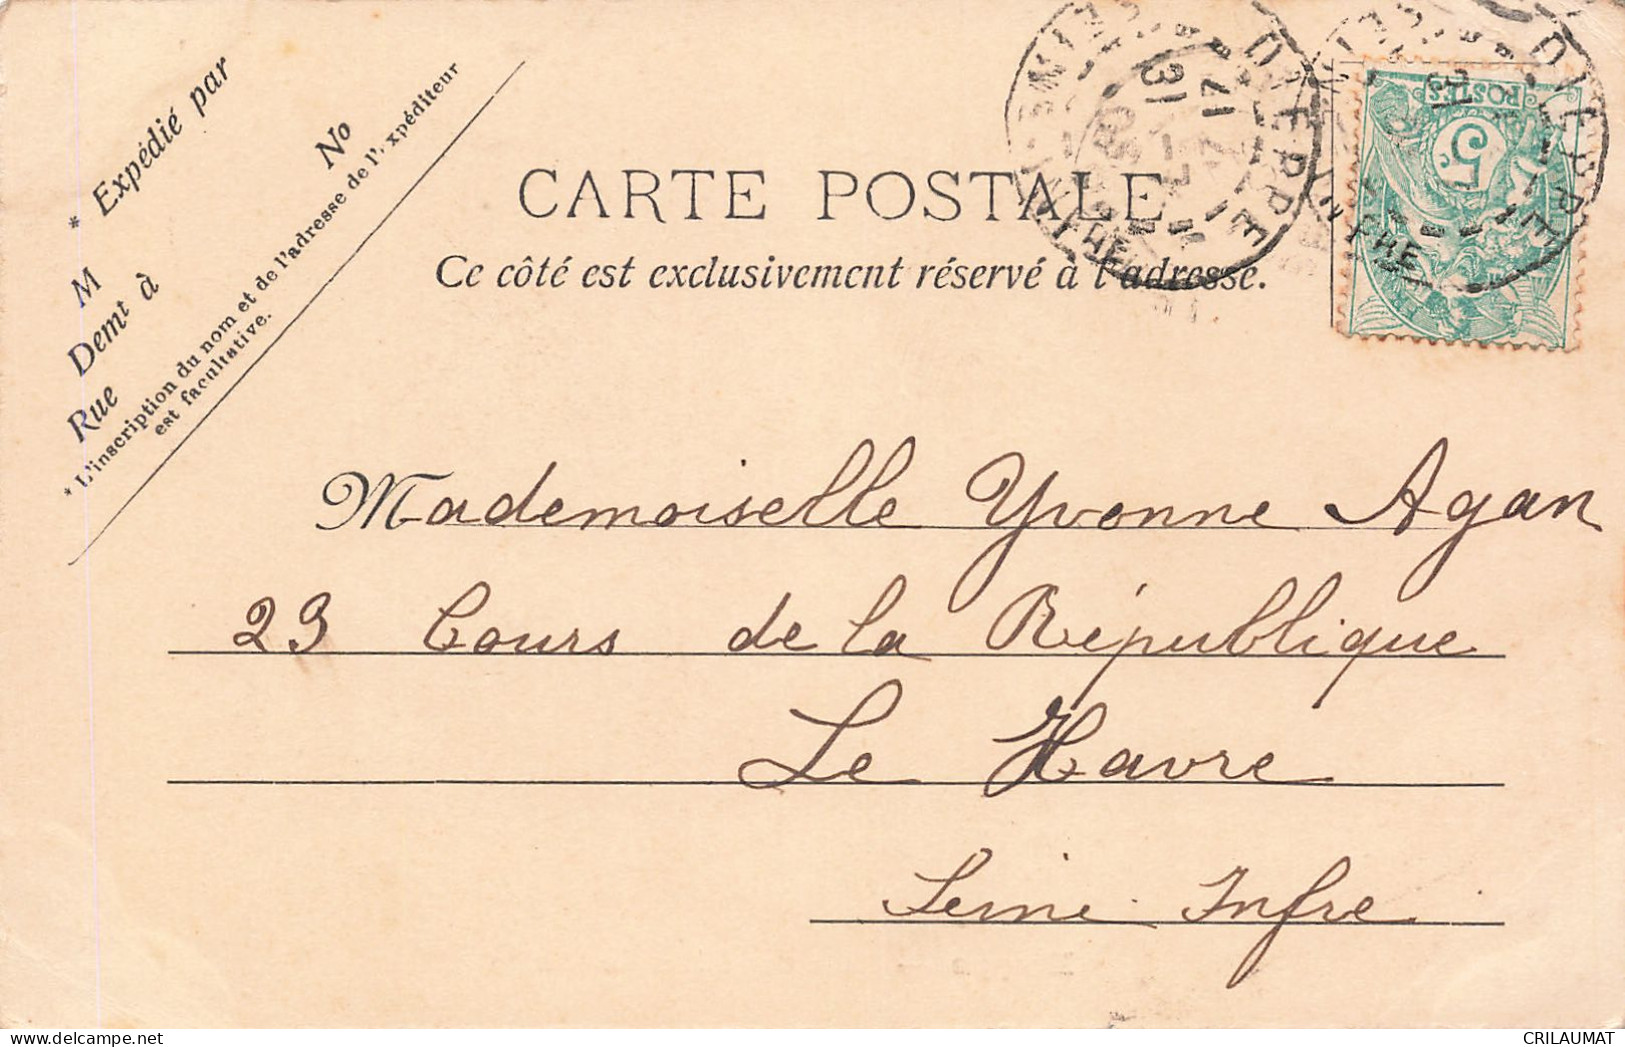 * Expédié par
M
Demt à
Rue No
* L'inscription du nom et de l'adresse de l'expéditeur
est facultative.
CARTE POSTALE
Ce côté est exclusivement réservé à l'adresse.
DIEPPE
31
INFRE
POSTES
5
DIEPPE
INFRE
Mademoiselle Yvonne Agan
23 Cours de la République
Le Havre
Seine Infre
CRILAUMAT